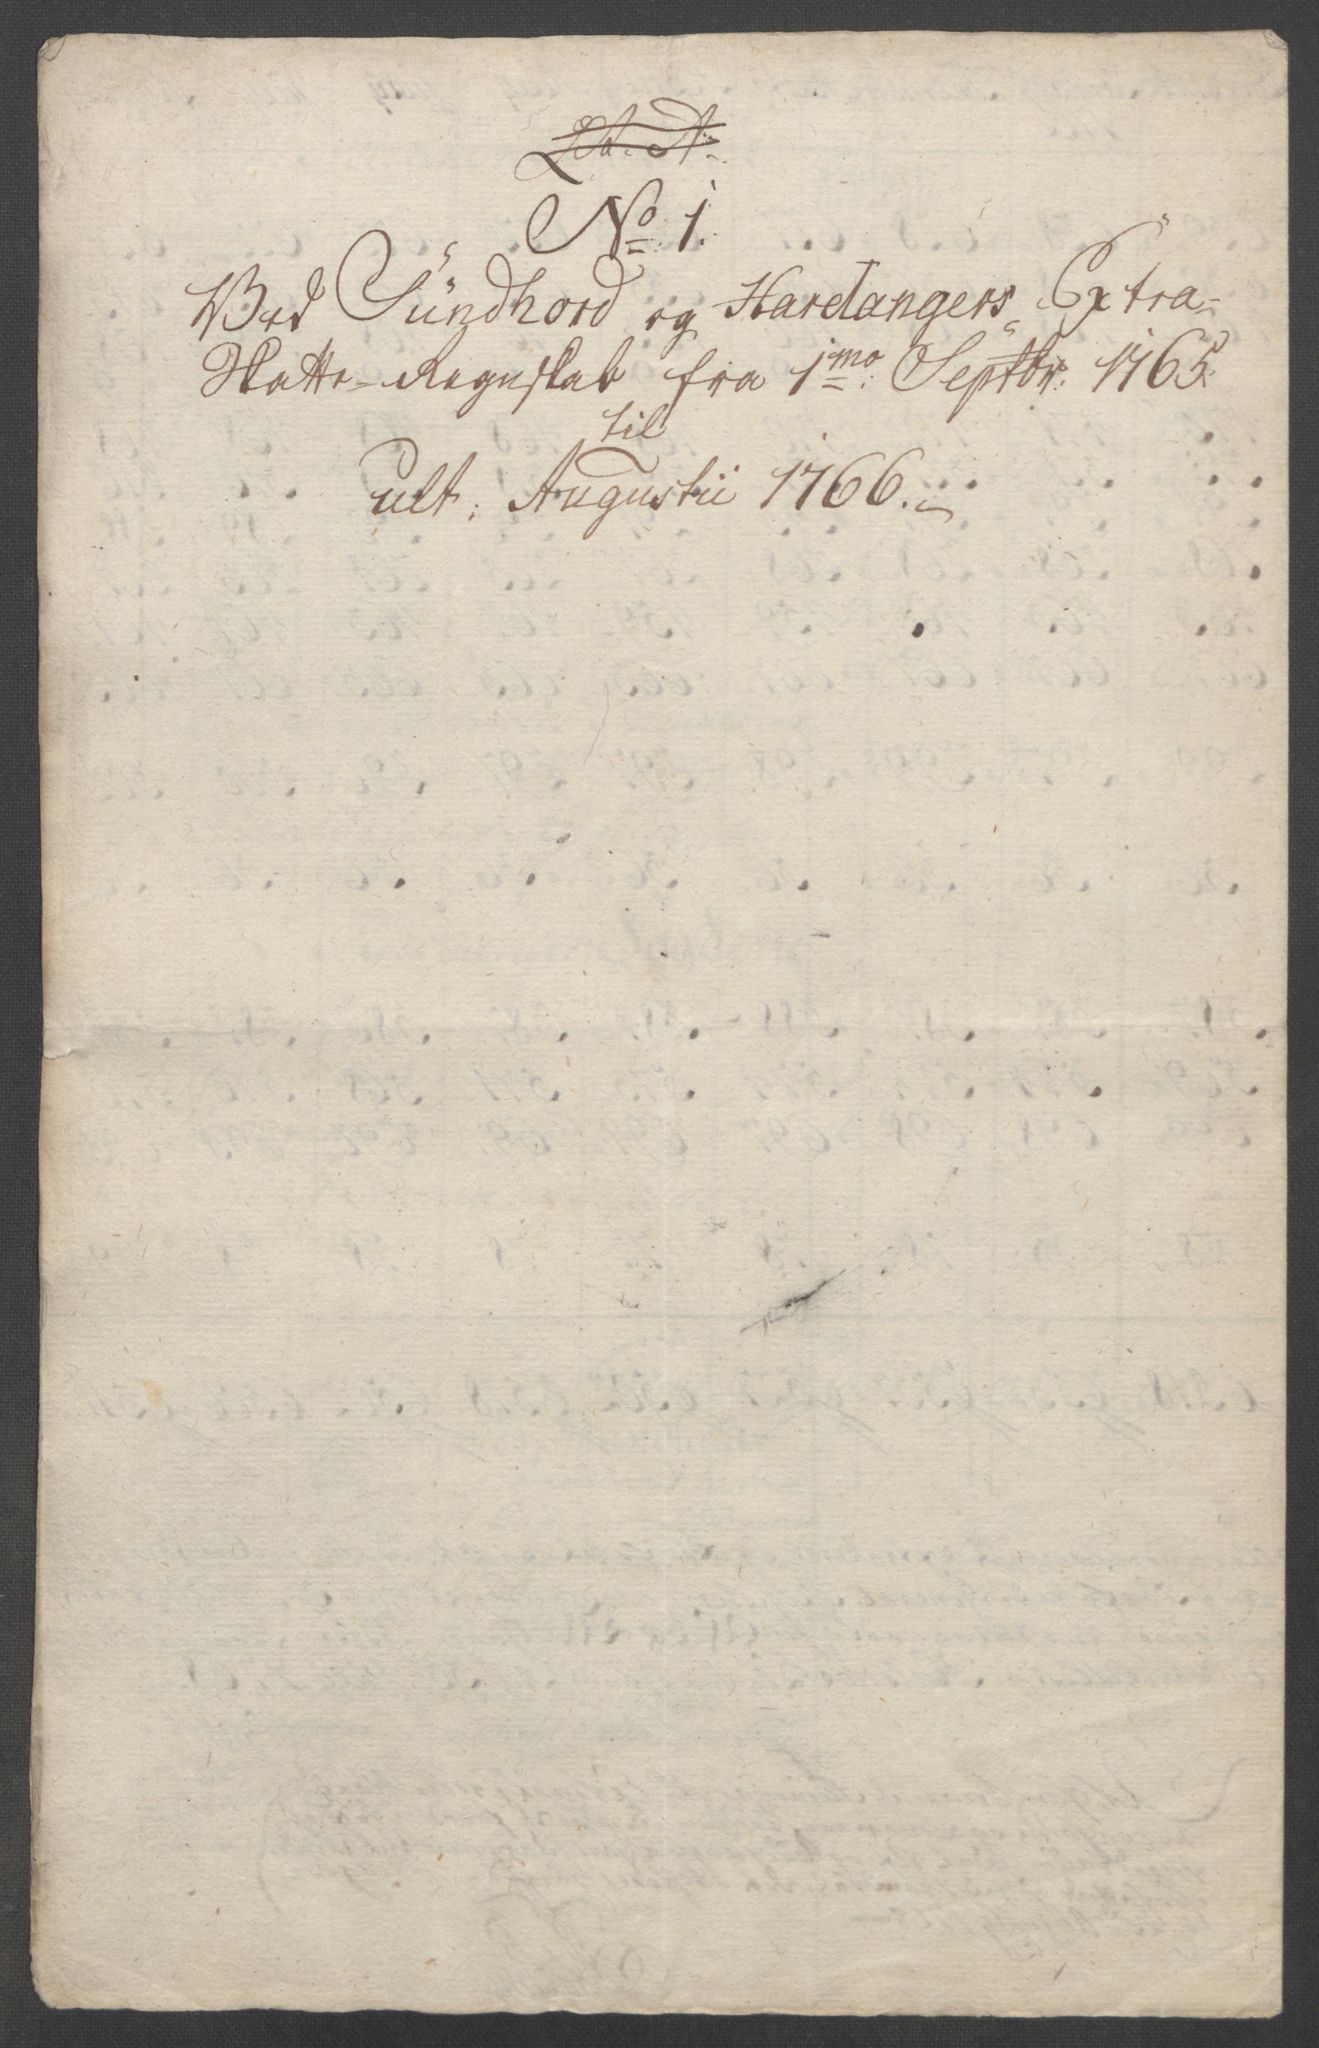 Lit. A.
No 1.
Ved Sündhord og Hardangers Extra-
Skatte-Regnskab fra 1mo Septbr. 1765.
til
ult. Augustii 1766.